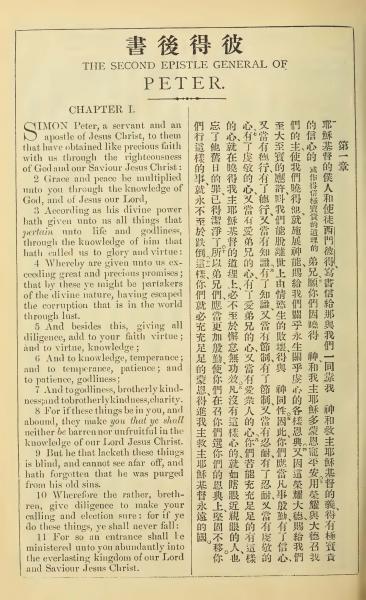 書後得彼
THE SECOND EPISTLE GENERAL OF
PETER.
CHAPTER I.
SIMON Peter, a servant and an
apostle of Jesus Christ, to them
that have obtained like precious faith
with us through the righteousness
of God and our Saviour Jesus Christ:
2 Grace and peace be multiplied
unto you through the knowledge of
God, and of Jesus our Lord,
3 According as his divine power
hath given unto us all things that
pertain unto life and godliness,
through the knowledge of him that
hath called us to glory and virtue:
4 Whereby are given unto us ex-
ceeding great and precious promises;
that by these ye might be partakers
of the divine nature, having escaped
the corruption that is in the world
through lust.
5 And besides this, giving all
diligence, add to your faith virtue;
and to virtue, knowledge;
6 And to knowledge, temperance;
and to temperance, patience; and
to patience, godliness;
7 And to godliness, brotherly kind-
ness; and to brotherly kindness, charity.
8 For if these things be in you, and
abound, they make you that ye shall
neither be barren nor unfruitful in the
knowledge of our Lord Jesus Christ.
9 But he that lacketh these things
is blind, and cannot see afar off, and
hath forgotten that he was purged
from his old sins.
10 Wherefore the rather, breth-
ren, give diligence to make your
calling and election sure: for if ye
do these things, ye shall never fall:
11 For so an entrance shall be
ministered unto you abundantly into
the everlasting kingdom of our Lord
and Saviour Jesus Christ.
第一章
耶穌基督的僕人和使徒西門彼得寫書信給那與我們一同靠我 神和救主耶穌基督的義得有極寶貴
的信心的或作得信極寶貴的道理的弟兄願你們因曉得 神和我主耶穌多蒙恩寵平安用榮耀大德召我
們的主使我們曉得他就施展神能賜給我們關乎永生關乎虔心的各樣恩典又因這榮耀大德賜給我們
至大至寶的應許叫我們能脫離世上由情慾生的敗壞得與 神同性因此你們應當凡事殷勤有了信心
又當有德行有了德行又當有知識有了知識又當有節制有了節制又當有忍耐有了忍耐又當有虔敬的
心有了虔敬的心又當有愛弟兄的心有了愛弟兄的心又當有愛衆人的心你們若能充充足足的有這樣
的心就在曉得我主耶穌基督的道理上必不至於懈怠無功效凡沒有這樣心的就如瞎眼近視眼的人也
忘了他舊日的罪已得潔淨了所以弟兄們應當更加殷勤使你們在召你們選你們的恩典上堅固不移你
們行這樣的事就永不至於跌倒這樣你們就必充充足足的蒙恩得進我主救主耶穌基督永遠的國